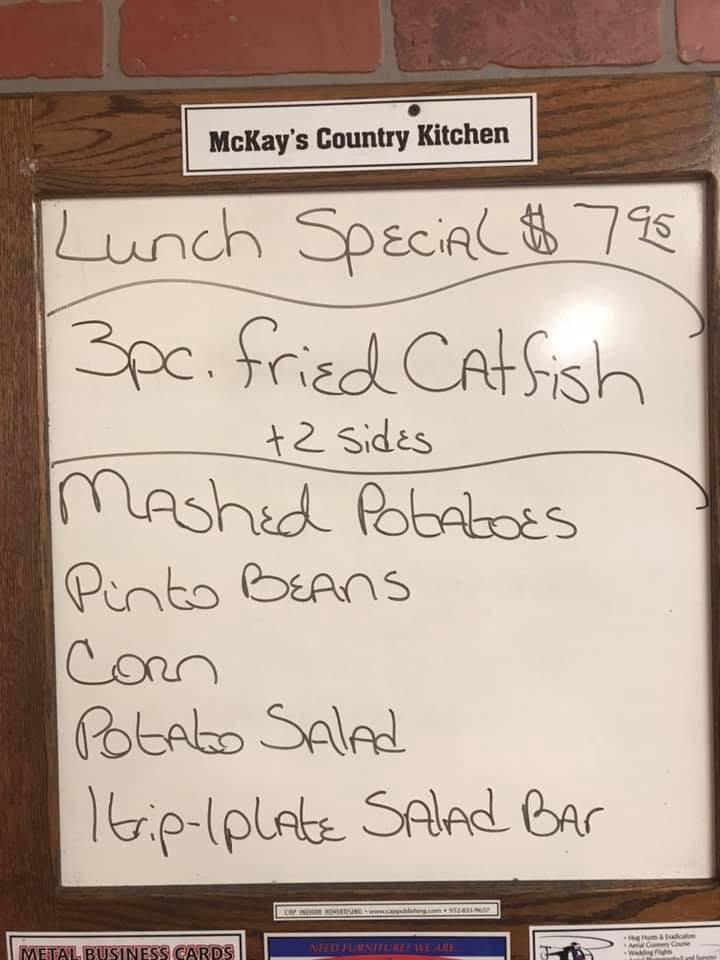 McKay's Country Kitchen
Lunch Special $ 7 95
3pc. fried Catfish
+2 sides
Mashed Potatoes
Pinto Beans
Corn
Potato Salad
1 trip-1 plate Salad Bar
CAP INDOOR ADVERTISING • www.cappublishing.com • 952-831-9657
METAL BUSINESS CARDS
NEED FURNITURE? WE ARE...
• Hog Hunts & Eradication
• Aerial Gunnery Course
• Wedding Flights